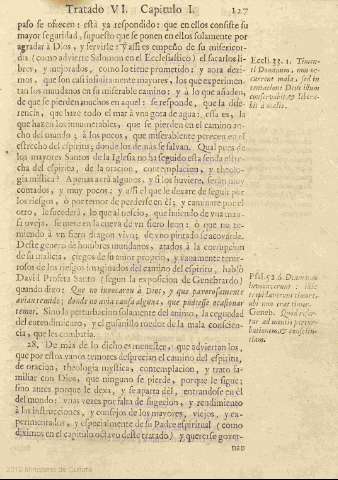 Tratado VI. Capitulo I. 127
paso se ofrecen: està ya respondido: que en ellos consiste su
mayor seguridad, supuesto que se ponen en ellos solamente por
agradar à Dios, y servirle: y assi es empeño de su misericor-
dia (como advierte Salomon en el Ecclesiastico) el sacarlos li-
bres, y mejorados, como lo tiene prometido: y aora deci-
mos, que son casi infinitamente mayores, los que experimen-
tan los mundanos en su miserable camino: y à lo que añaden,
de que se pierden muchos en aquel: se responde, que la dife-
rencia, que haze todo el mar à una gota de agua, essa es, la
que hazen los innumerables, que se pierden en el camino an-
cho del mundo; à los pocos, que miserablemente perecen en el
estrecho del espiritu; donde los de màs se salvan. Qual pues de
los mayores Santos de la Iglesia no ha seguido esta senda estre-
cha del espiritu, de la oracion, contemplacion, y theolo-
gia mistica? Apenas avrà algunos, y si los huviere, seràn muy
contados, y muy pocos: y assi el que le dexare de seguir por
los riesgos, ò por temor de perderse en èl; y caminare por el
otro, le sucederà, lo que al necio, que huiendo de una man-
sa oveja, se metiò en la cueva de un fiero leon: ò que no te-
miendo à un fiero dragon vivo, de uno pintado se acovarde.
Deste genero de hombres mundanos, atados à la corrupcion
de su malicia, ciegos de su amor proprio, y vanamente teme-
rosos de los riesgos imaginados del camino del espiritu, hablò
David Profeta Santo (segun la exposicion de Genebrardo)
quando dixo: Que no invocaron à Dios, y que perversamente
avian temido; donde no avia causa alguna, que pudiesse ocasionar
temor. Sino la perturbacion solamente del animo, la ceguedad
del entendimiento, y el gusanillo roedor de la mala conscien-
cia, que les combatia.
28. De màs de lo dicho es menester: que adviertan los,
que por estos vanos temores desprecian el camino del espiritu,
de oracion, theologia mystica, contemplacion, y trato fa-
miliar con Dios, que ninguno se pierde, porque le sigue;
sino antes porque le dexa, y se aparta dèl, entrandose en èl
del mundo: unas vezes por falta de sugecion, y rendimiento
à las instrucciones, y consejos de los mayores, viejos, y ex-
perimentados, y especialmente de su Padre espiritual (como
diximos en el capitulo octavo deste tratado) y quererse gover-
nar
Eccli. 33. 1. Timen-
ti Dominum, non oc-
current mala, sed in
tentatione Deus illum
conservabit, & libera-
bit à malis.
Psal. 52. 6. Deum non
invocaverunt: illic
trepidaverunt timore,
ubi non erat timor.
Geneb.
2010 Ministerio de Cultura